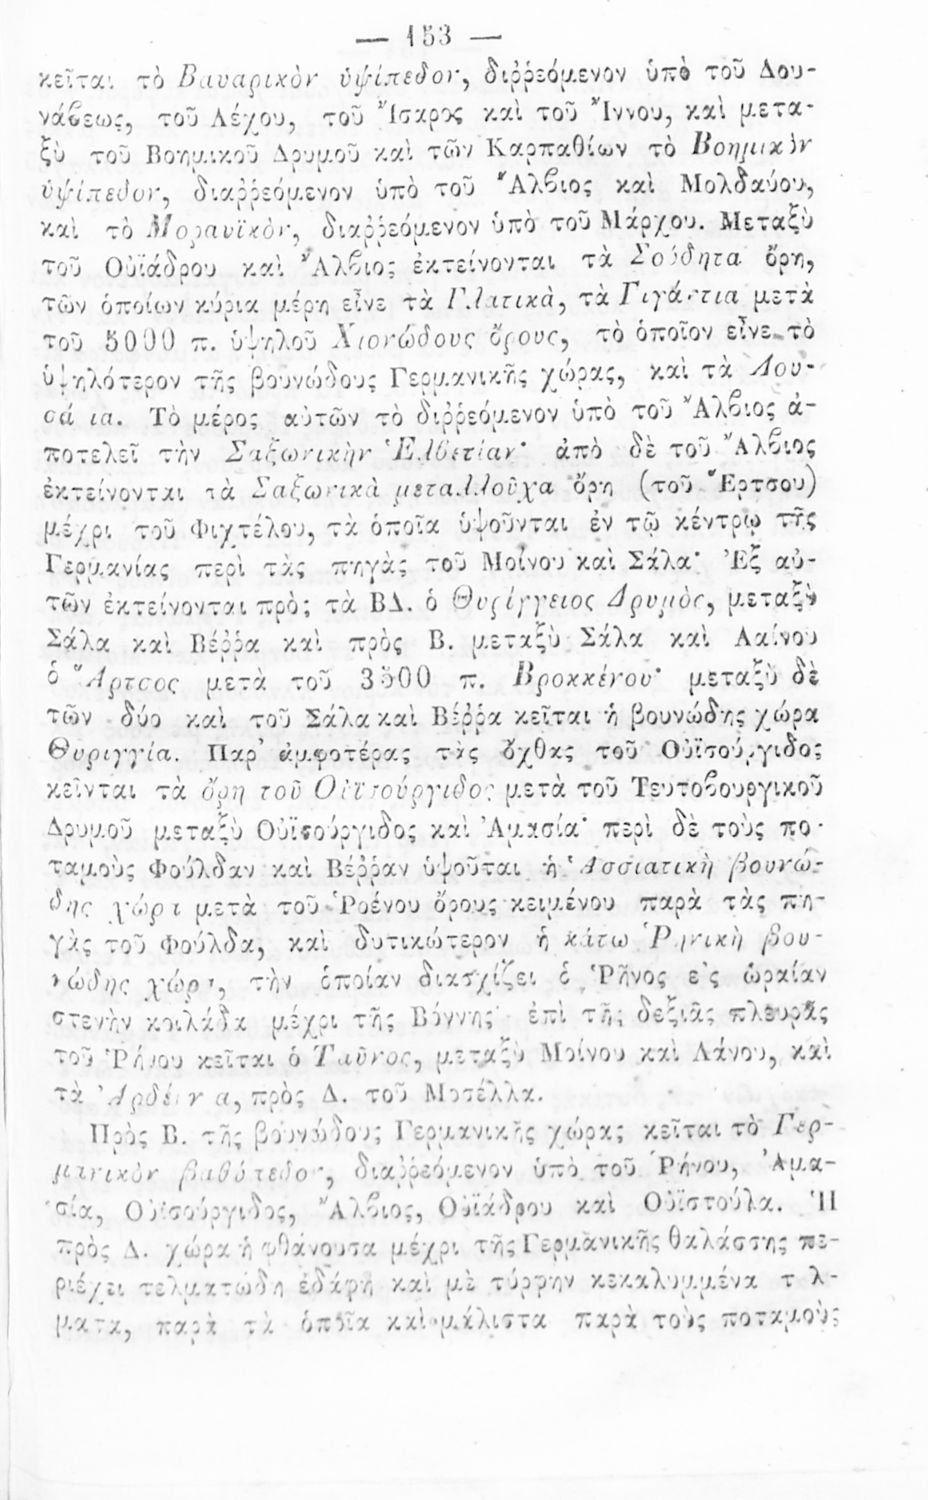 — 153 —
κεῖται τὸ Βαυαρικὸν ὑψίπεδον, διῤῥεόμενον ὑπὸ τοῦ Δου-
νάβεως, τοῦ Λέχου, τοῦ Ἴσαρος καὶ τοῦ Ἴννου, καὶ μετα-
ξὺ τοῦ Βοημικοῦ Δρυμοῦ καὶ τῶν Καρπαθίων τὸ Βοημικὸν
ὑψίπεδον, διαῤῥεόμενον ὑπὸ τοῦ Ἄλβιος καὶ Μολδαύου,
καὶ τὸ Μοραυϊκὸν, διαῤῥεόμενον ὑπὸ τοῦ Μάρχου. Μεταξὺ
τοῦ Οὐϊάδρου καὶ Ἄλβιος ἐκτείνονται τὰ Σούδητα ὄρη,
τῶν ὁποίων κύρια μέρη εἶνε τὰ Γλατικὰ, τὰ Γιγάντια μετὰ
τοῦ 5000 π. ὑψηλοῦ Χιονώδους ὄρους, τὸ ὁποῖον εἶνε τὸ
ὑψηλότερον τῆς βουνώδους Γερμανικῆς χώρας, καὶ τὰ Λου-
σά ια. Τὸ μέρος αὐτῶν τὸ διῤῥεόμενον ὑπὸ τοῦ Ἄλβιος ἀ-
ποτελεῖ τὴν Σαξωνικὴν Ἑλβετίαν· ἀπὸ δὲ τοῦ Ἄλβιος
ἐκτείνονται τὰ Σαξωνικὰ μεταλλοῦχα ὄρη (τοῦ Ἔρτσου)
μέχρι τοῦ Φιχτέλου, τὰ ὁποῖα ὑψοῦνται ἐν τῷ κέντρῳ τῆς
Γερμανίας περὶ τὰς πηγὰς τοῦ Μοίνου καὶ Σάλα· Ἐξ αὐ-
τῶν ἐκτείνονται πρὸς τὰ ΒΔ. ὁ Θυρίγγειος Δρυμὸς, μεταξὺ
Σάλα καὶ Βέῤῥα καὶ πρὸς Β. μεταξὺ Σάλα καὶ Λαίνου
ὁ Ἄρτσος μετὰ τοῦ 3500 π. Βροκκένου· μεταξὺ δὲ
τῶν δύο καὶ τοῦ Σάλα καὶ Βέῤῥα κεῖται ἡ βουνώδης χώρα
Θυριγγία. Παρ' ἀμφοτέρας τὰς ὄχθας τοῦ Οὐϊσούργιδος
κεῖνται τὰ ὄρη τοῦ Οὐϊσούργιδος μετὰ τοῦ Τευτοβουργικοῦ
Δρυμοῦ μεταξὺ Οὐϊσούργιδος καὶ Ἀμασία· περὶ δὲ τοὺς πο-
ταμοὺς Φούλδαν καὶ Βέῤῥαν ὑψοῦται ἡ Ἀσσιατικὴ βουνώ-
δης χώρα μετὰ τοῦ Ῥοένου ὄρους κειμένου παρὰ τὰς πη-
γὰς τοῦ Φούλδα, καὶ δυτικώτερον ἡ κάτω Ῥηνικὴ βου-
νώδης χώρα, τὴν ὁποίαν διασχίζει ὁ Ῥῆνος εἰς ὡραίαν
στενὴν κοιλάδα μέχρι τῆς Βόννης· ἐπὶ τῆς δεξιᾶς πλευρᾶς
τοῦ Ῥήνου κεῖται ὁ Ταῦνος, μεταξὺ Μοίνου καὶ Λάνου, καὶ
τὰ Ἀρδέννα, πρὸς Δ. τοῦ Μοσέλλα.
Πρὸς Β. τῆς βουνώδους Γερμανικῆς χώρας κεῖται τὸ Γερ-
μανικὸν βαθύπεδον, διαῤῥεόμενον ὑπὸ τοῦ Ῥήνου, Ἀμα-
σία, Οὐϊσούργιδος, Ἄλβιος, Οὐϊάδρου καὶ Οὐϊστούλα. Ἡ
πρὸς Δ. χώρα ἡ φθάνουσα μέχρι τῆς Γερμανικῆς θαλάσσης πε-
ριέχει τελματώδη ἐδάφη καὶ μὲ τύρφην κεκαλυμμένα τ λ-
ματα, παρὰ τὰ ὁποῖα καὶ μάλιστα παρὰ τοὺς ποταμοὺς